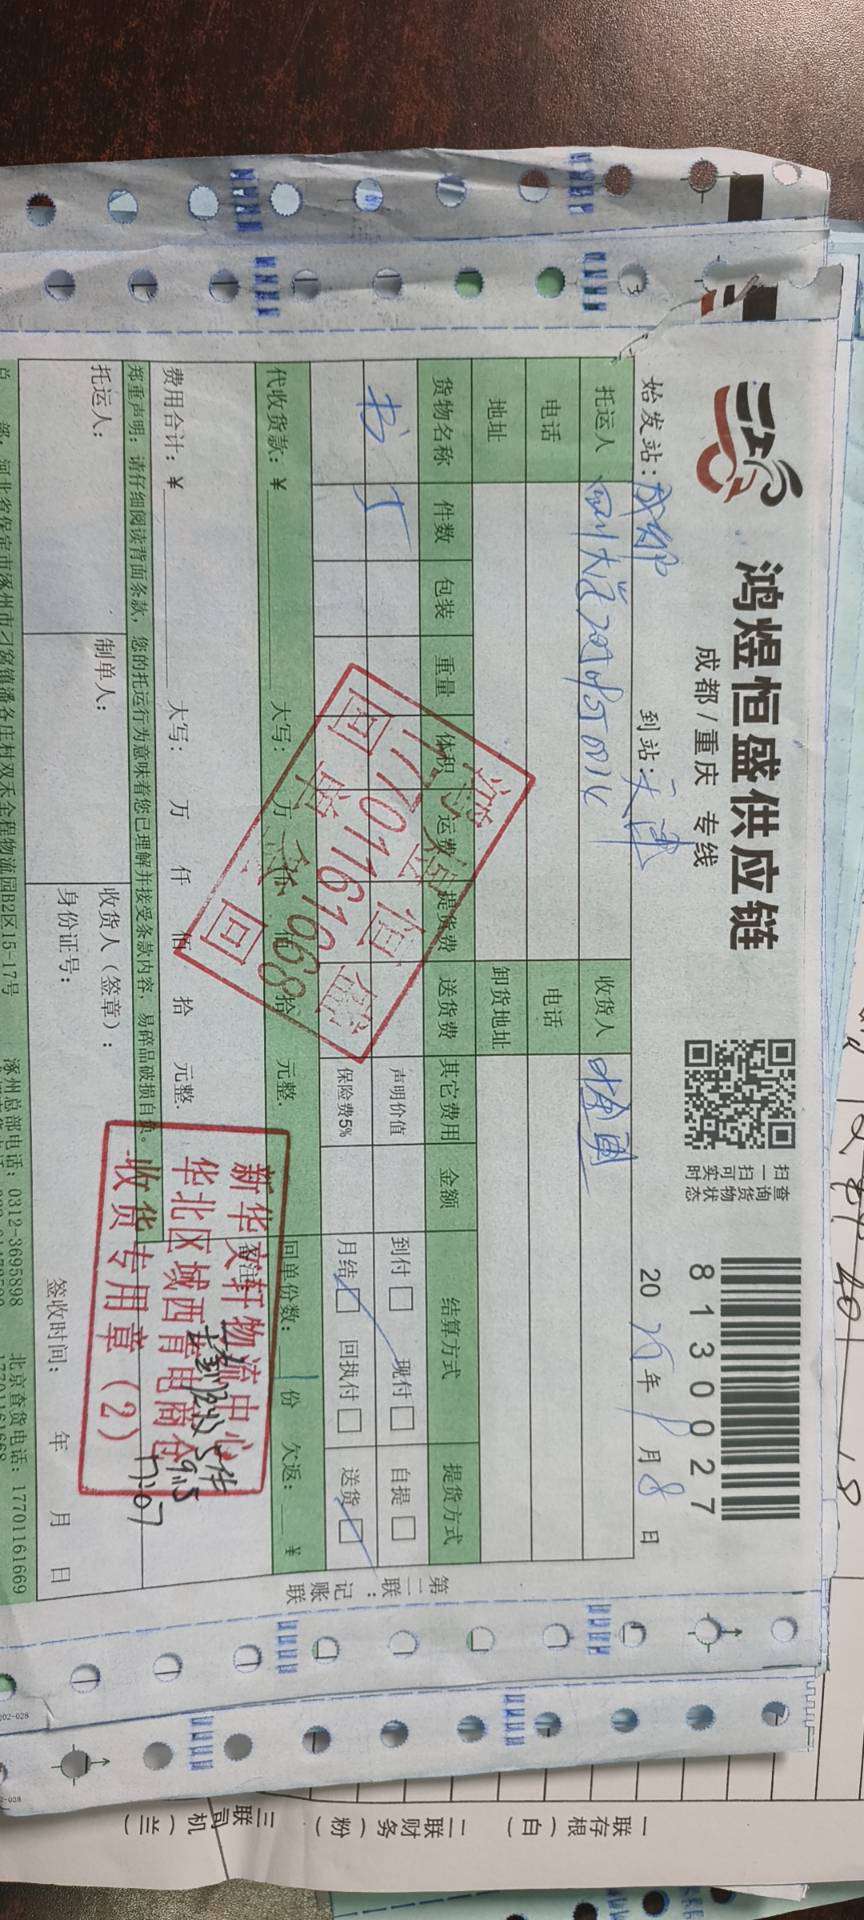 鸿煜恒盛供应链
成都/重庆 专线
扫一扫可查询货物实时状态
8130027
始发站：成都 到站：天津 20 25 年 月 8 日
托运人 四川大学 收货人
电话 电话
地址 卸货地址
货物名称 件数 包装 重量 体积 运费 提货费 送货费 其它费用 金额 结算方式 提货方式
书 5 声明价值 到付 现付 自提
保险费5% 月结 回执付 送货
代收货款：¥ 大写： 万 仟 佰 拾 元整. 回单份数： 1 份 欠返： ¥
费用合计：¥ 大写： 万 仟 佰 拾 元整. 备注
郑重声明：请仔细阅读背面条款，您的托运行为意味着您已理解并接受条款内容，易碎品破损自负。
托运人： 制单人： 收货人（签章）：
身份证号： 签收时间： 年 月 日
总 部：河北省保定市涿州市刁窝镇潘各庄村双天全程物流园B2区15-17号 涿州总部电话：0312-3695898 北京查货电话：17701161669
17701161668
第二联：记账联
17701161968
回 单 回
新华文轩物流中心
华北区域西青电商仓
收货专用章（2）
实收5件
9.15
17:07
一联存根（白） 二联财务（粉） 三联司机（兰）